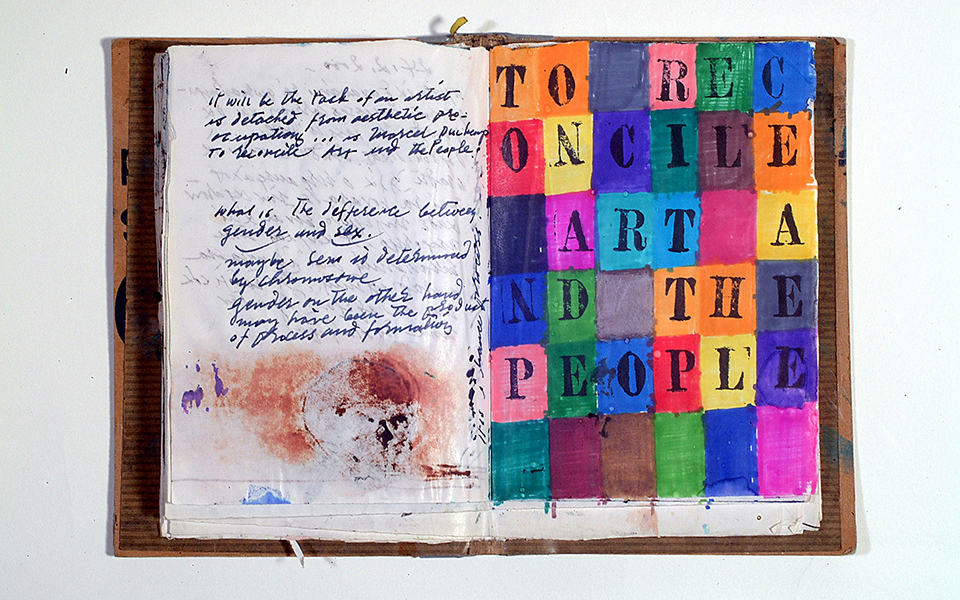 it will be the tack of an artist
is detached from aesthetic pro-
occupations... is Marcel Duchamp
To reconcile Art and the People.
what is The difference between
gender and sex.
maybe sens is determined
by chromosome
gender on the other hand
may have been the product
of process and formation
TO REC
ONCILE
ART A
ND THE
PEOPLE